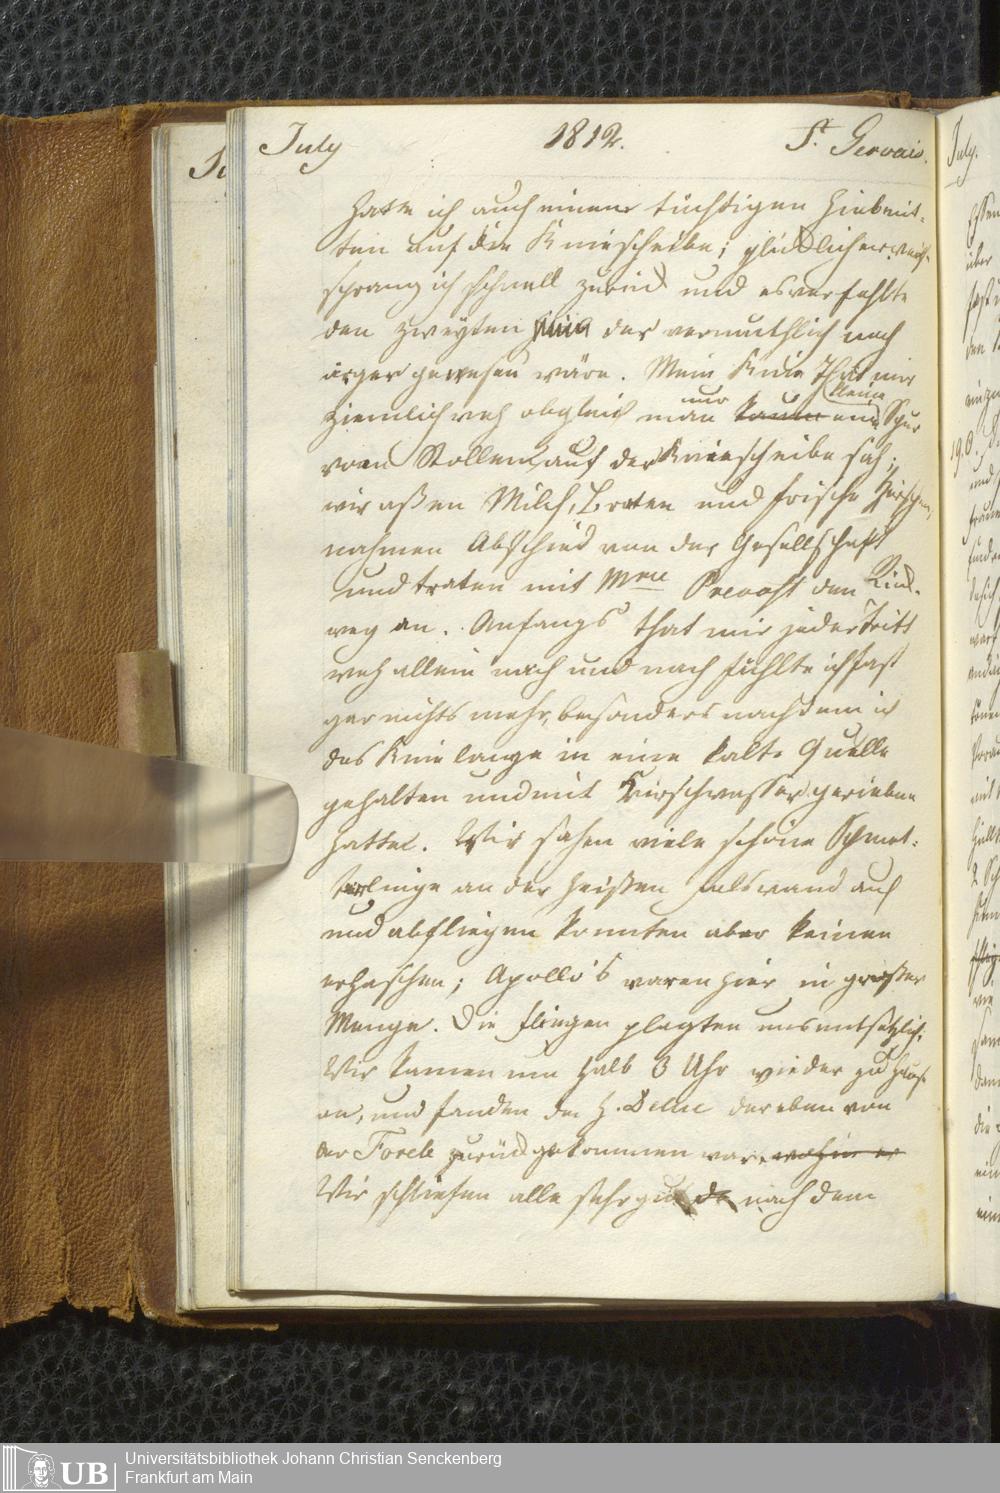 July 1812. St. Gervais.
hatte ich auch einen tüchtigen Hieb mit-
ten auf die Kniescheibe; glücklicherweis-
sprang ich schnell zurück und es verfehlte
den zweyten der vermuthlich noch
ärger gewesen wäre. Mein Knie that mir
ziemlich weh obgleich man nur kaum eine kleine Spur
vom Stollen auf der Kniescheibe sah;
wir aßen Milch, Braten und frische
nahmen Abschied von der Gesellschaft
und traten mit Mme Prevost den Rück-
weg an. Anfangs that mir jeder Tritt
weh allein nach und nach fühlte ich fast
gar nichts mehr, besonders nachdem ich
das Knie lange in eine kalte Quelle
gehalten und mit Kirschwasser gerieben
hatte. Wir sahen viele schöne Schmet-
terlinge an der heißen Felswand auf
und abfliegen konnten aber keinen
erhaschen; Apollo's waren hier in großer
Menge. Die Fliegen plagten uns entsetzlich.
Wir kamen um halb 3 Uhr wieder zu Hause
an, und fanden den H. der eben von
der zurückgekommen war, wohin er
Wir schliefen alle sehr gut da nach dem
July.
Universitätsbibliothek Johann Christian Senckenberg
Frankfurt am Main
UB